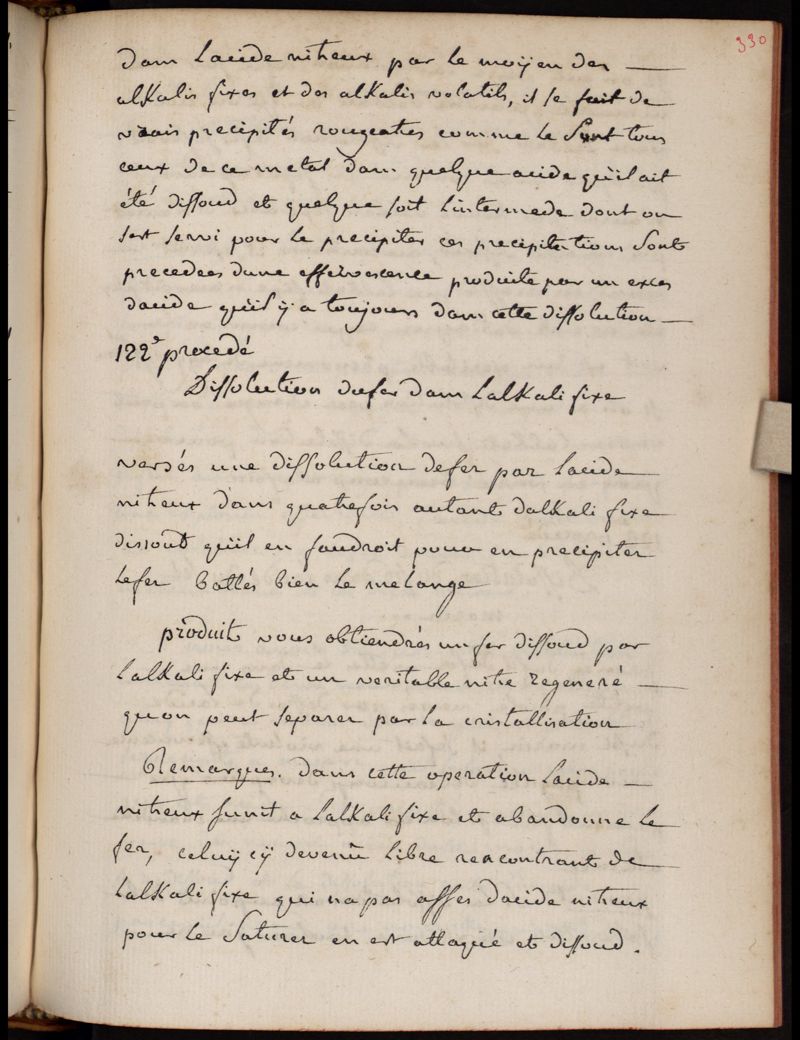 330
dans lacide nitreux par le moyen des —
alkalis fixes et des alkalis volatils, il se fait de
vrais precipités rougeatres comme le sont tous
ceux de ce metal dans quelque acide quil ait
été dissoud et quelque soit lintermede dont on
sest servi pour le precipiter ces precipitations sont
precedees dune effervescence produite par un exces
dacide quil y a toujours dans cette dissolution —
122e procedé
Dissolution dufer dans lalkali fixe
versés une dissolution defer par lacide
nitreux dans quatrefois autant dalkali fixe
dissout quil en faudroit pour en precipiter
lefer battés bien le melange
produit vous obtiendrés un fer dissoud par
lalkali fixe et un veritable nitre regeneré —
quon peut separer par la cristallisation
Remarques. dans cette operation lacide —
nitreux sunit a lalkali fixe et abandonne le
fer, celuy cÿ devenu libre rencontrant de
lalkali fixe qui napas assés dacide nitreux
pour le saturer en est attaqué et dissoud.